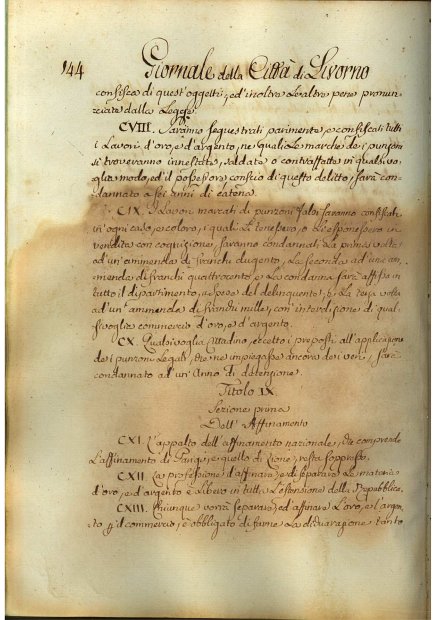 144 Giornale della Città di Livorno
confisca di quest'oggetti, ed inoltre le altre pene pronun-
ziate dalla Legge.
CVIII. Saranno sequestrati parimente, e confiscati tutti
i Lavori d'oro, e d'argento, ne' quali le marche de' punzoni
si troveranno innestate, saldate o contraffatte in qualsivo-
glia modo, ed il possessore conscio di questo delitto, sarà con-
dannato a sei anni di catena.
CIX. I Lavori marcati di punzoni falsi saranno confiscati
in ogni caso, e coloro, i quali li tenessero, o li esponessero in
vendita con cognizione, saranno condannati La prima volta
ad un'ammenda di franchi dugento, La seconda ad una am-
menda di franchi quattrocento, e La condanna sarà affissa in
tutto il dipartimento, a spese del delinquente, e La terza volta
ad un' ammenda di franchi mille, con interdizione di qual-
sivoglia commercio d'oro, e d'argento.
CX. Qualsivoglia Cittadino, eccetto i preposti all'applicazione
de' punzoni Legali, che ne impiegasse ancora dei veri, sarà
condannato ad un'Anno di detenzione.
Titolo IX.
Sezione prima
Dell' Affinamento
CXI. L'appalto dell'affinamento nazionale, che comprende
L'affinamento di Parigi, e quello di Lione, resta soppresso.
CXII. La professione d'affinare, e di separare Le materie
d'oro, e d'argento è Libera in tutta L'estensione della Repubblica.
CXIII. Chiunque vorrà separare, ed affinare L'oro, e L'argen-
to p il commercio, è obbligato di farne La dichiarazione tanto